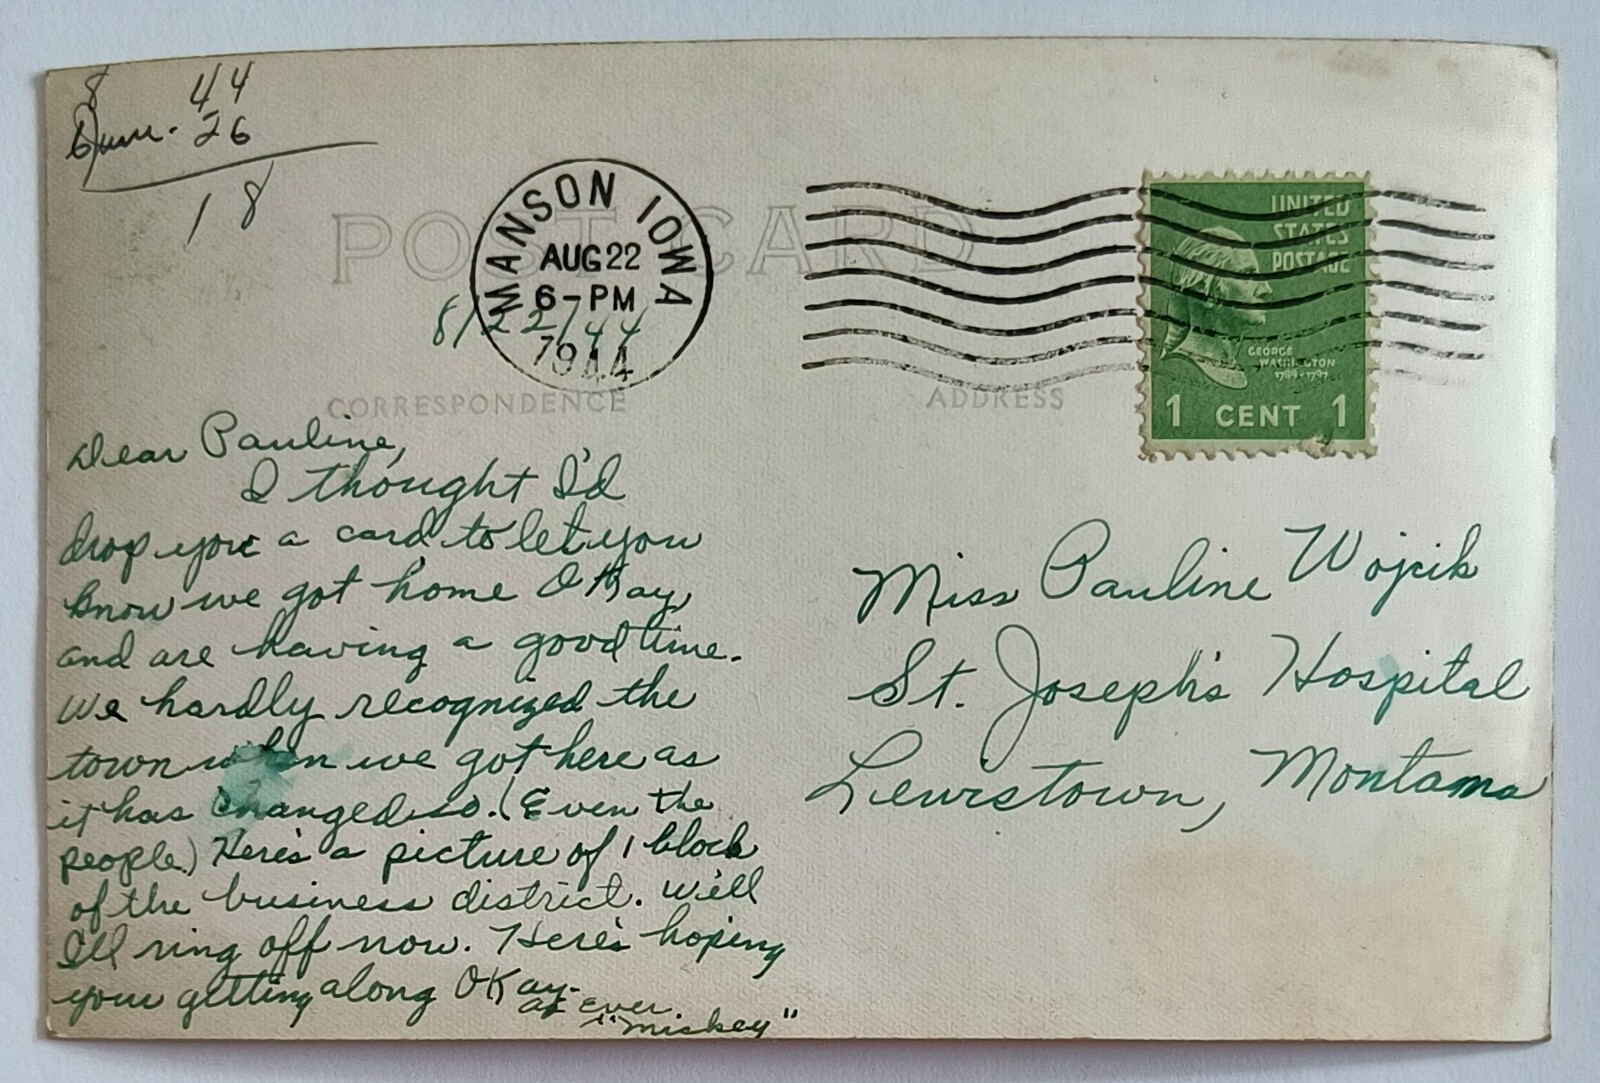 8 44
26
18
POST CARD
MANSON IOWA
AUG 22
6-PM
1944
8/22/44
UNITED
STATES
POSTAGE
GEORGE
WASHINGTON
1789-1797
1 CENT 1
CORRESPONDENCE
ADDRESS
Dear Pauline,
I thought I'd
drop you a card to let you
know we got home OKay,
and are having a good time.
We hardly recognized the
town when we got here as
it has changed so. (Even the
people.) Here's a picture of 1 block
of the business district. Well
I'll ring off now. Here's hoping
your getting along OKay.
as ever
"Mickey"
Miss Pauline Wojcik
St. Joseph's Hospital
Lewistown, Montana